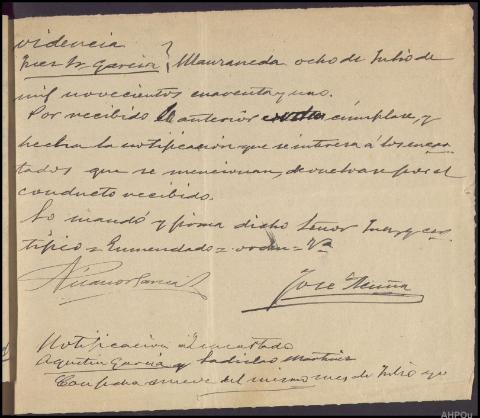 videncia
Juez Sr. Garcia } Manzaneda ocho de Julio de
mil novecientos cuarenta y uno.
Por recibido la anterior cúmplase, y
hecha la notificación que se interesa á los encar
tados que se mencionan, devuelvase por el
conducto recibido.
Lo mandó y firma dicho Señor Juez, y cer-
tifico = Enmendado = orden = Va
Nicanor Garcia
José Acuña
Notificación al encartado
Agustin Garcia y Ladislao Martinez
Con fecha nueve del mismo mes de Julio yo
AHPOu